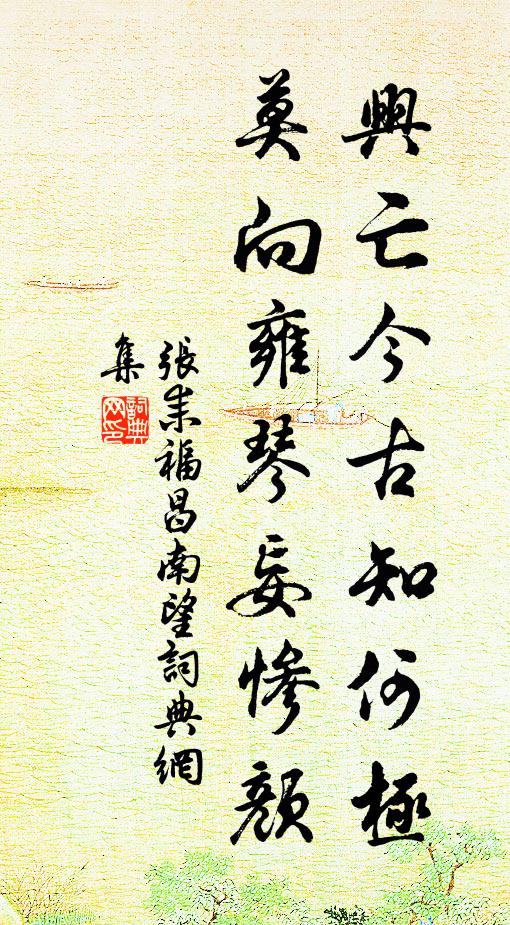 興亡今古知何極
莫向雍琴妄慘顔
張耒福昌南望詞典網
集
詞典
网印